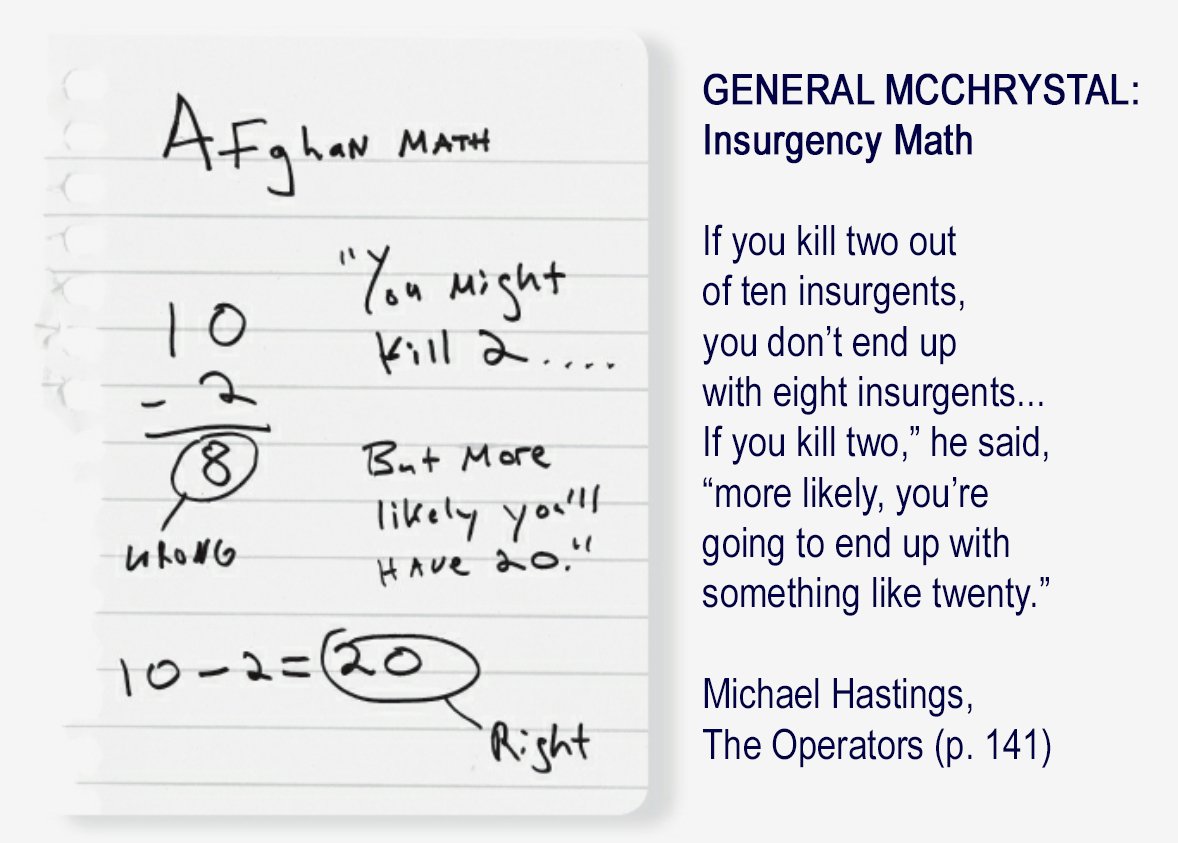 AFghaN MATH
"You Might
kill 2 ....
10
- 2
8
WRONG
But More
likely you'll
HAVE 20."
10-2=20
Right
GENERAL MCCHRYSTAL:
Insurgency Math
If you kill two out
of ten insurgents,
you don’t end up
with eight insurgents...
If you kill two,” he said,
“more likely, you’re
going to end up with
something like twenty.”
Michael Hastings,
The Operators (p. 141)